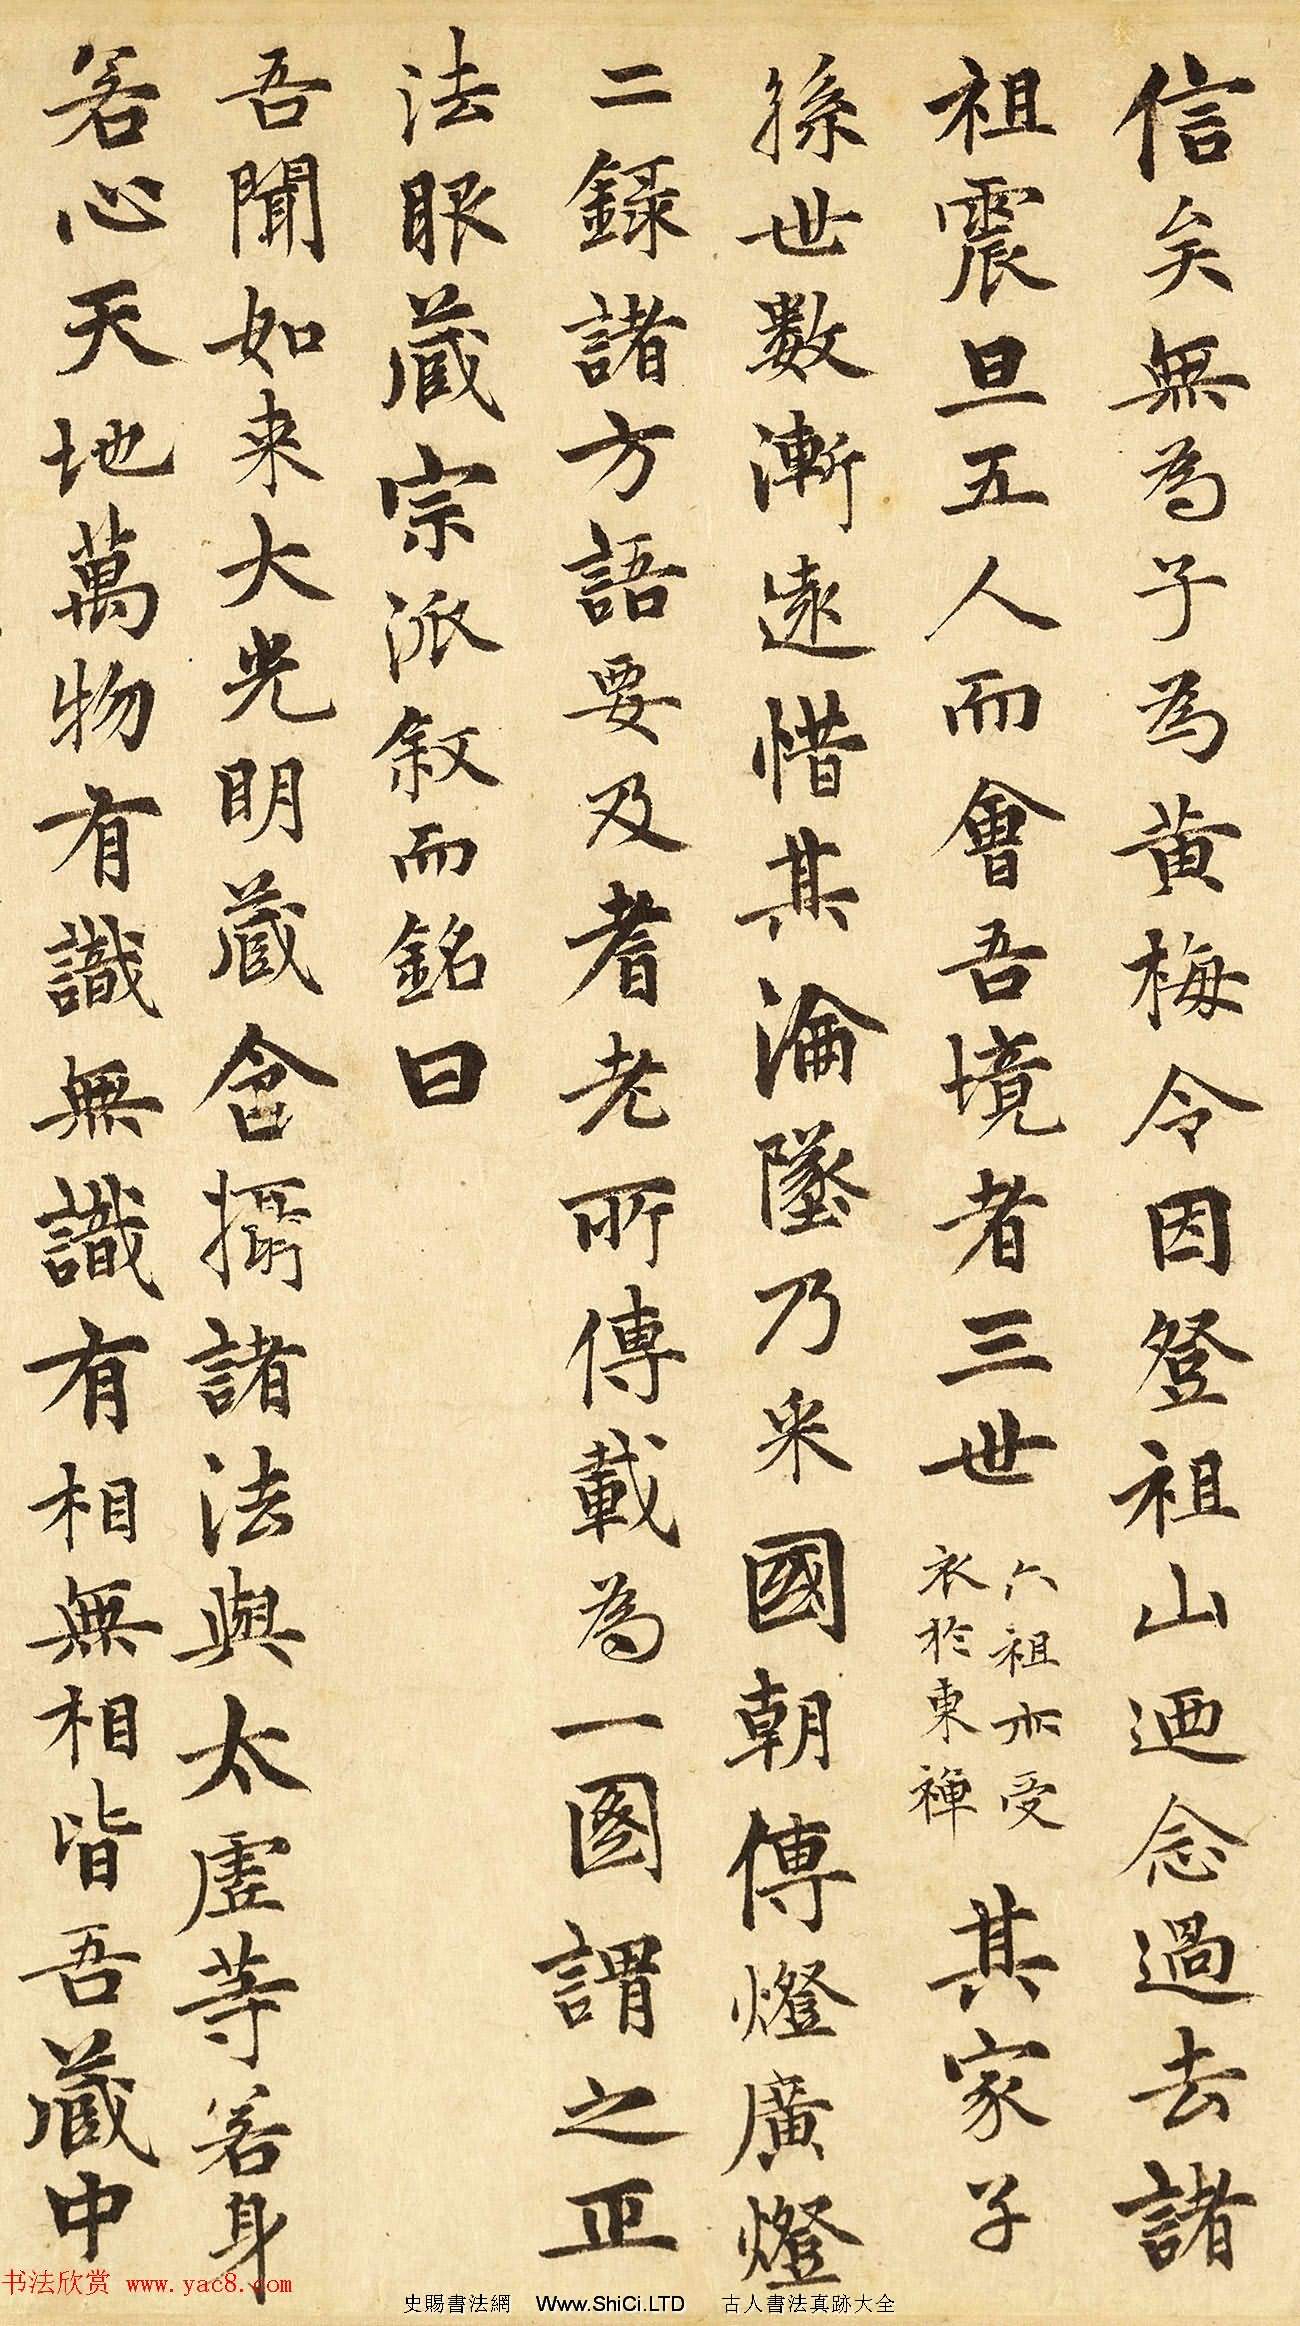 信矣無為子為黃梅令因登祖山迺念過去諸
祖震旦五人而會吾境者三世六祖亦受衣於東禪其家子
孫世數漸遠惜其淪墜乃采國朝傳燈廣燈
二錄諸方語要及耆老所傳載為一圖謂之正
法眼藏宗派敘而銘曰
吾聞如来大光明藏含攝諸法與太虛等若身
若心天地萬物有識無識有相無相皆吾藏中
书法欣赏 www.yac8.com
史賜書法網 Www.ShiCi.LTD 古人書法真跡大全